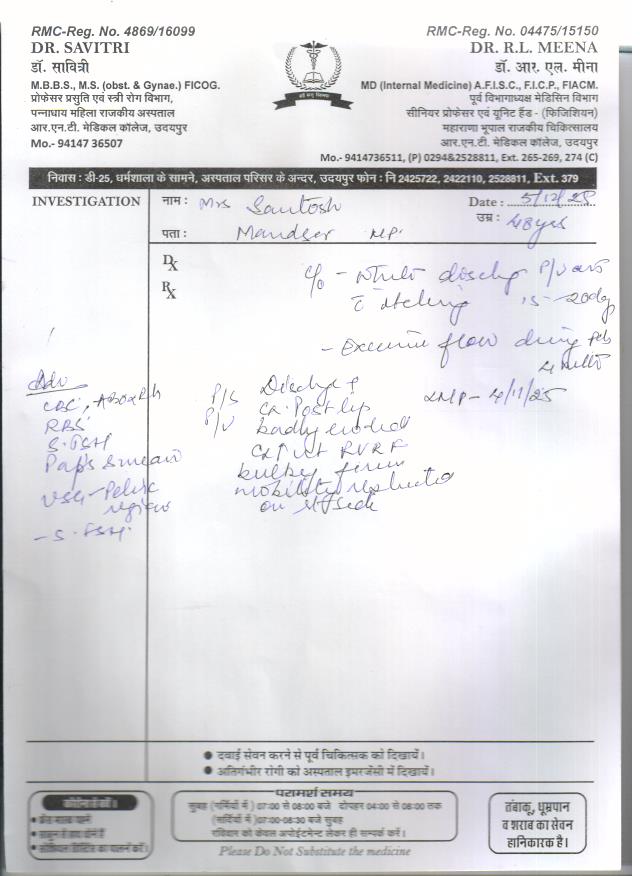 RMC-Reg. No. 4869/16099
DR. SAVITRI
डॉ. सावित्री
M.B.B.S., M.S. (obst. & Gynae.) FICOG.
प्रोफेसर प्रसुति एवं स्त्री रोग विभाग,
पन्नाधाय महिला राजकीय अस्पताल
आर.एन.टी. मेडिकल कॉलेज, उदयपुर
Mo.- 94147 36507
RMC-Reg. No. 04475/15150
DR. R.L. MEENA
डॉ. आर. एल. मीना
MD (Internal Medicine) A.F.I.S.C., F.I.C.P., FIACM.
पूर्व विभागाध्यक्ष मेडिसिन विभाग
सीनियर प्रोफेसर एवं यूनिट हैंड - (फिजिशियन)
महाराणा भूपाल राजकीय चिकित्सालय
आर.एन.टी. मेडिकल कॉलेज, उदयपुर
Mo.- 9414736511, (P) 0294&2528811, Ext. 265-269, 274 (C)
निवास : डी-25, धर्मशाला के सामने, अस्पताल परिसर के अन्दर, उदयपुर फोन : नि 2425722, 2422110, 2528811, Ext. 379
INVESTIGATION
नाम : Mrs Santosh
Date : 5/12/25
उम्र : 48yrs
पता : Mandser MP.
Dx
Rx
c/o - white dischg P/V
c itching 15-20day
- Excessive flow during
LMP - 4/11/25
Adv
CBC, ABO & Rh
RBS
S. TSH
Pap's Smear
USG - Pelvic
region
- S. FSH.
P/S Discharge +
Cx. Post lip
P/V badly eroded
Cx ut RVRF
bulky firm
mobility restricted
on side
दवाई सेवन करने से पूर्व चिकित्सक को दिखायें।
अतिगंभीर रोगी को अस्पताल इमरजेंसी में दिखायें।
परामर्श समय
सुबह (गर्मियों में) 07:00 से 08:00 बजे दोपहर 04:00 से 06:00 तक
(सर्दियों में) 07:00-08:30 बजे सुबह
रविवार को केवल अपोईटमेन्ट लेकर ही सम्पर्क करें।
Please Do Not Substitute the medicine
तंबाकू, धूम्रपान
व शराब का सेवन
हानिकारक है।